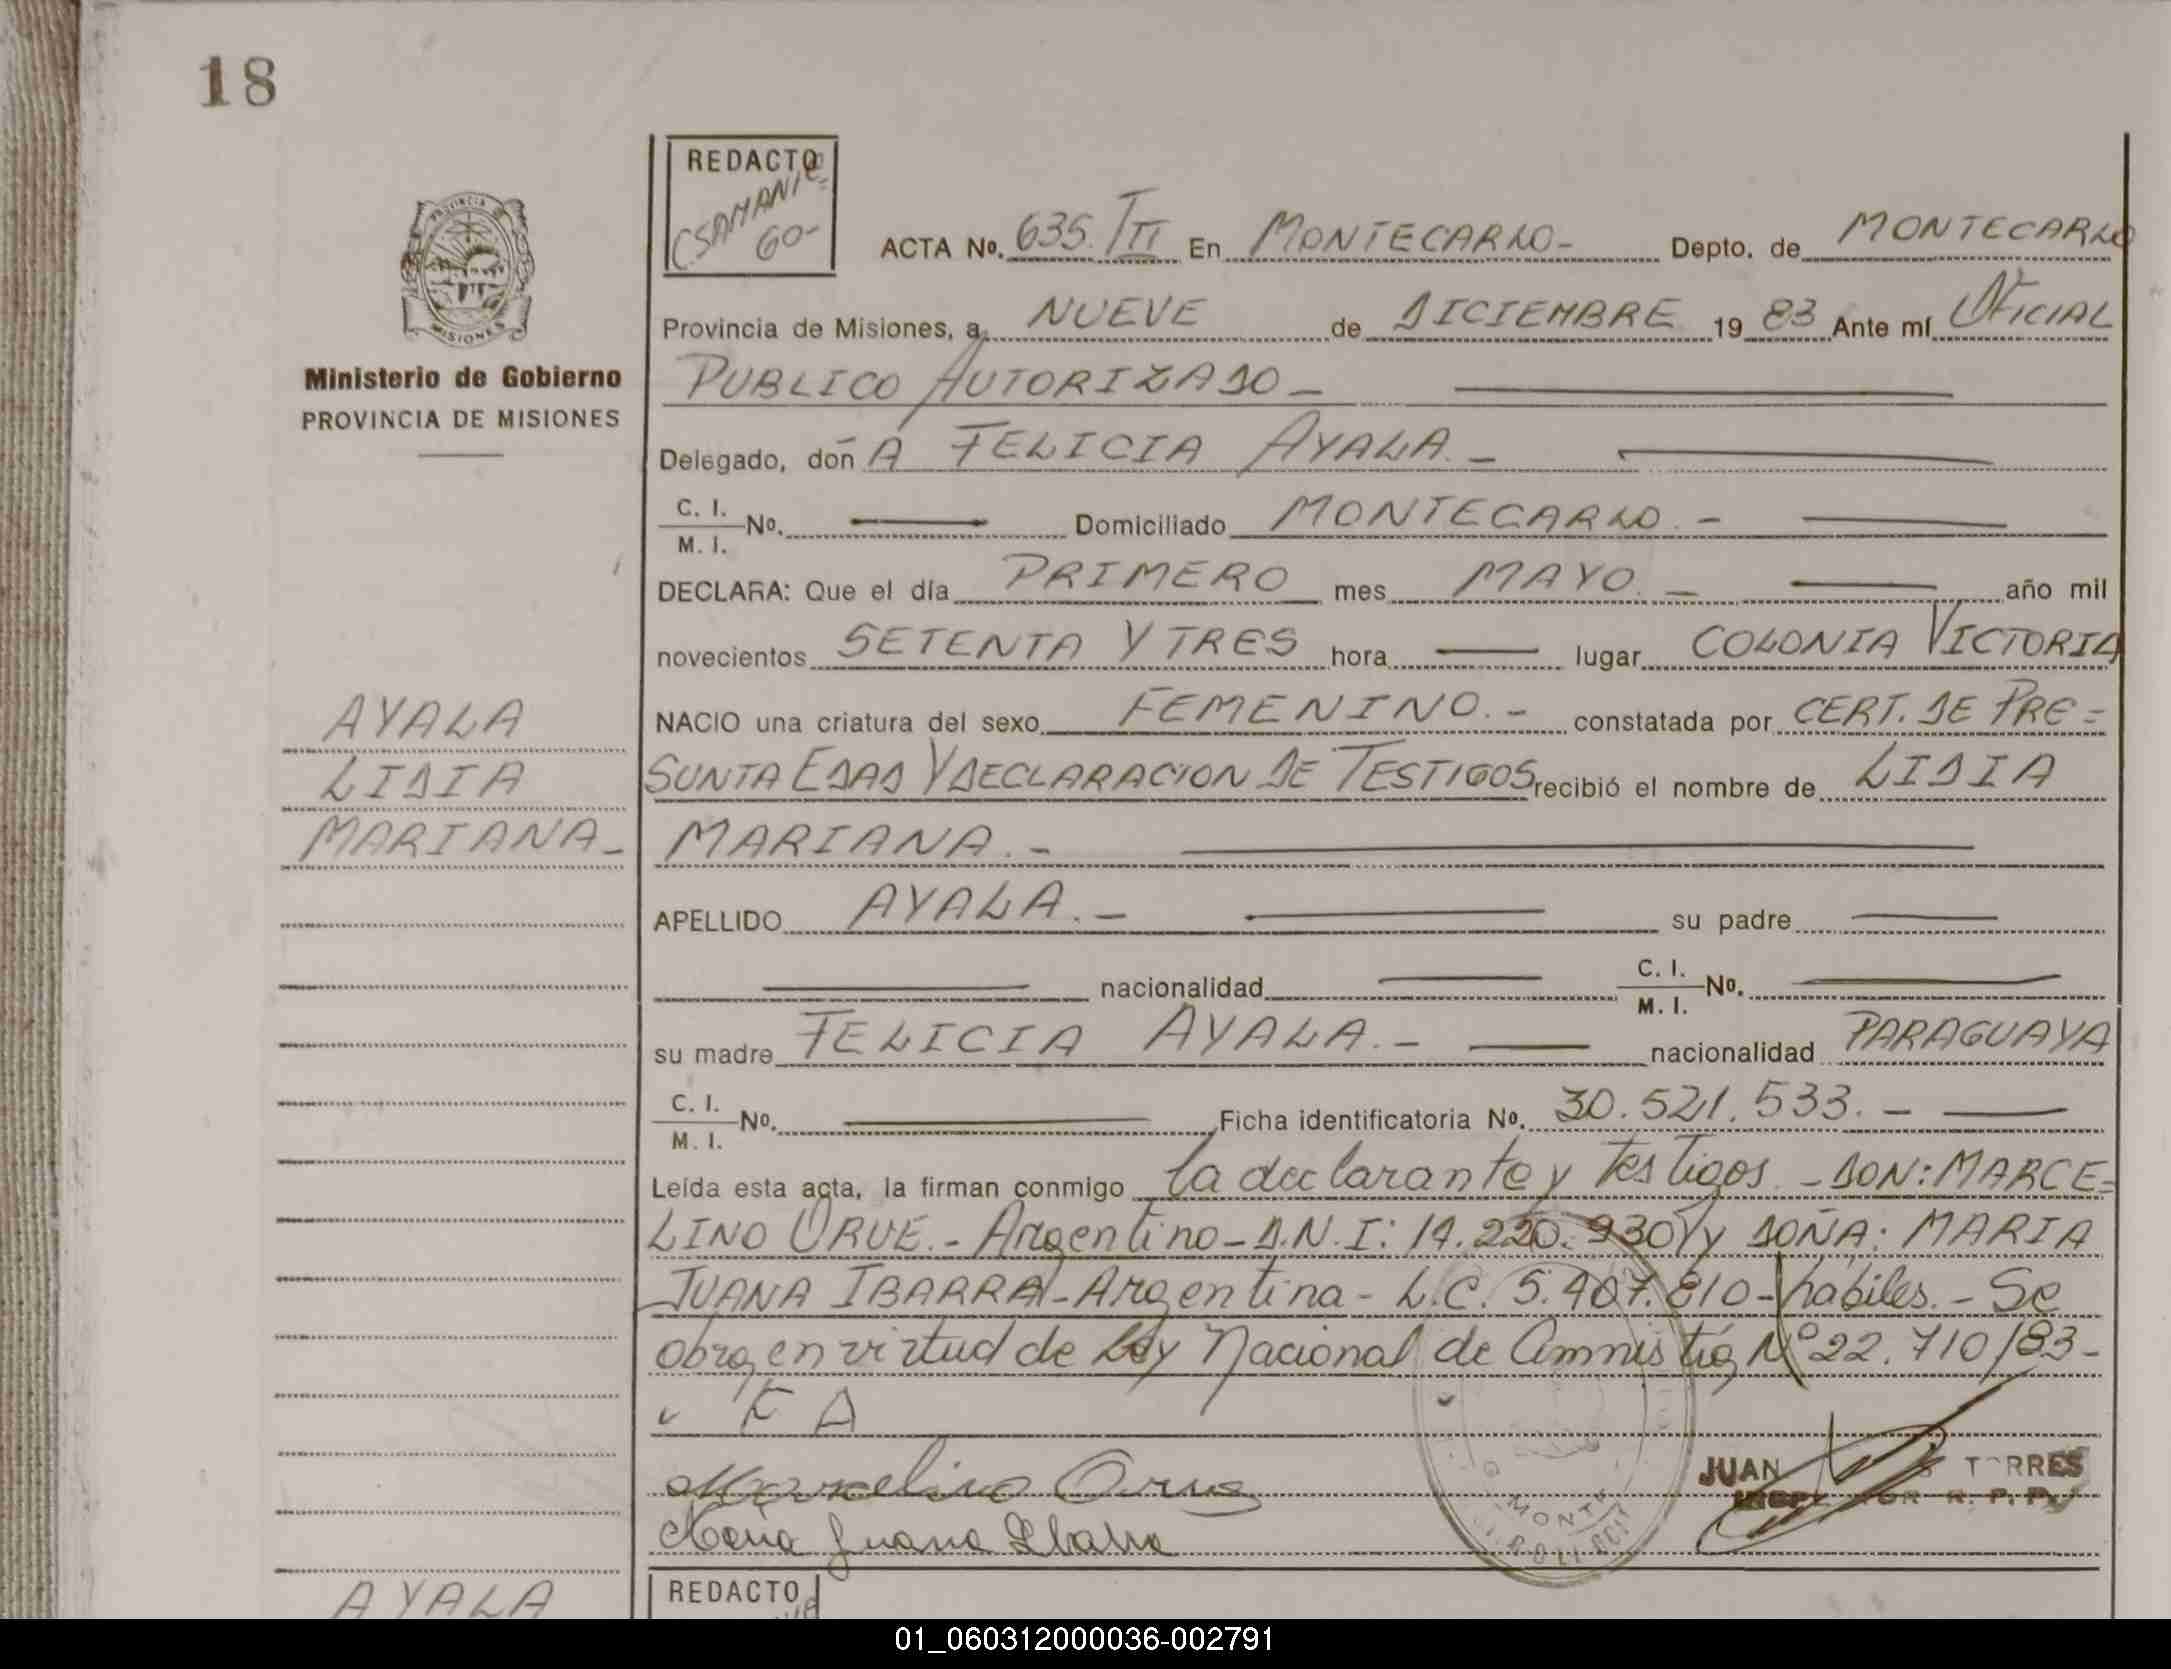 18
REDACTO
PROVINCIA
MISIONES
Ministerio de Gobierno
PROVINCIA DE MISIONES
ACTA No. 635. T III En MONTECARLO- Depto. de MONTECARLO
Provincia de Misiones, a NUEVE de DICIEMBRE 19 83 Ante mí OFICIAL
PUBLICO AUTORIZADO -
Delegado, don A FELICIA AYALA. -
C. I.
M. I. No. Domiciliado MONTECARLO. -
DECLARA: Que el día PRIMERO mes MAYO. - año mil
novecientos SETENTA Y TRES hora lugar COLONIA VICTORIA
NACIO una criatura del sexo FEMENINO. - constatada por CERT. DE PRE=
SUNTA EDAD Y DECLARACION DE TESTIGOS recibió el nombre de LIDIA
MARIANA. -
AYALA
LIDIA
MARIANA-
APELLIDO AYALA. - su padre
nacionalidad C. I.
M. I. No.
su madre FELICIA AYALA. - nacionalidad PARAGUAYA
C. I.
M. I. No. Ficha identificatoria No. 30.521.533. -
Leída esta acta, la firman conmigo la declarante y Testigos. - DON: MARCE=
LINO ORUE. - Argentino - D.N.I: 14.220.930 y DOÑA: MARIA
JUANA IBARRA - Argentina - L.C. 5.407.810 - hábiles. - Se
obra en virtud de Ley Nacional de Amnistía Nº 22.710/83 -
F A
Marcelino Orue
Juana Ibarra
JUAN TORRES
R. P. P.
MONTE
AYALA
REDACTO
01_060312000036-002791